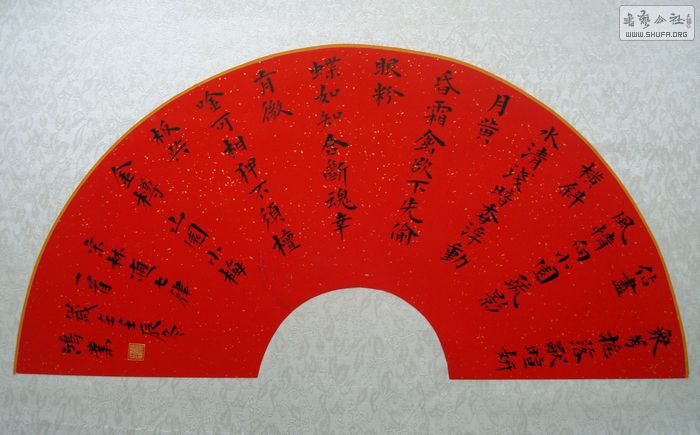 眾芳摇落獨暄妍
佔盡
風情向小園疏影
橫斜
水清淺暗香浮動
月黄
昏霜禽欲下先偷
眼粉
蝶如知合斷魂幸
有微
吟可相狎不須檀
板共
金樽 山園小梅
宋林逋七律
一首 歲在壬辰冬
鴻業
書藝公社
WWW.SHUFA.ORG